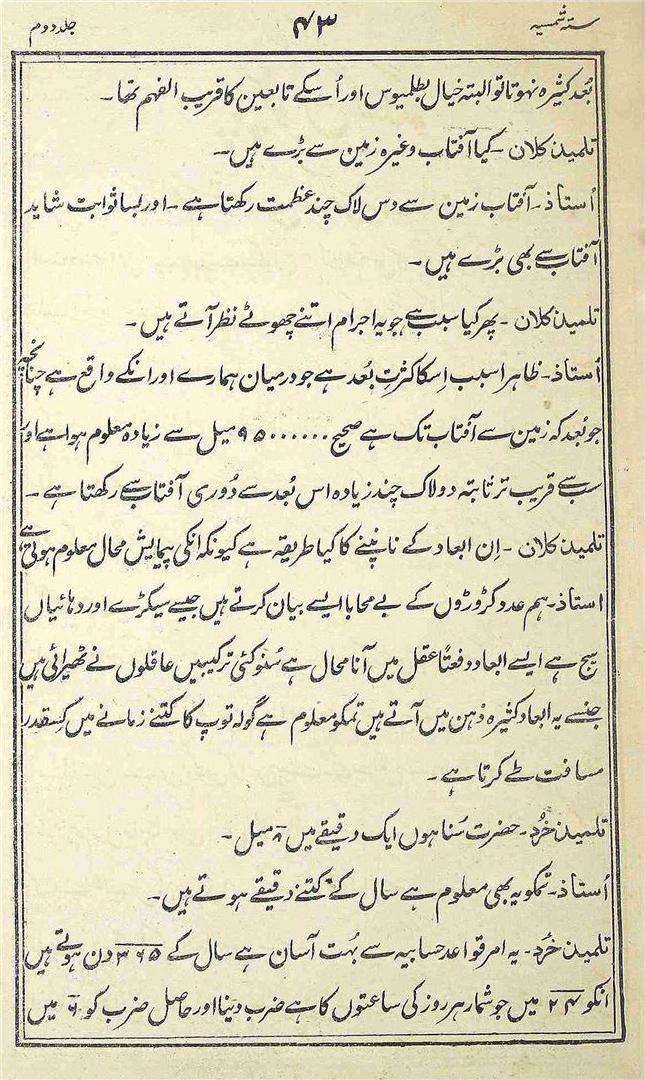 ستہ شمسیہ ۴۳ جلد دوم
بُعد کثیرہ نہوتا تو البتہ خیال بطلمیوس اور اُسکے تابعین کا قریب الفہم تھا۔
تلمیذ کلان ۔ کیا آفتاب وغیرہ زمین سے بڑے ہیں۔
اُستاذ۔ آفتاب زمین سے دس لاک چند عظمت رکھتا ہے ۔ اور بسا ثوابت شاید
آفتاب سے بھی بڑے ہیں ۔
تلمیذ کلان ۔ پھر کیا سبب ہے جو یہ اجرام اتنے چھوٹے نظر آتے ہیں ۔
اُستاذ۔ ظاہرا سبب اِسکا کثرتِ بُعد ہے جو درمیان ہمارے اور انکے واقع ہے چنانچہ
جو بُعد کہ زمین سے آفتاب تک ہے صحیح ۹۵۰۰۰۰۰۰ میل سے زیادہ معلوم ہوا ہے اور
سب سے قریب تر ثابتہ دو لاک چند زیادہ اس بُعد سے دُوری آفتاب سے رکھتا ہے ۔
تلمیذ کلان ۔ اِن ابعاد کے ناپنے کا کیا طریقہ ہے کیونکہ انکی پیمایش محال معلوم ہوتی ہے
استاذ۔ ہم عدد کروڑوں کے بے محابا ایسے بیان کرتے ہیں جیسے سیکڑے اور دہائیاں
سچ ہے ایسے ابعاد دفعتاً عقل میں آنا محال ہے سُنو کئی ترکیبیں عاقلوں نے ٹھیرائی ہیں
جنسے یہ ابعاد کثیرہ ذہن میں آتے ہیں تمکو معلوم ہے گولہ توپ کا کتنے زمانے میں کسقدر
مسافت طے کرتا ہے ۔
تلمیذ خُرد۔ حضرت سُنا ہوں ایک دقیقے میں ۸ میل ۔
اُستاذ۔ تمکو یہ بھی معلوم ہے سال کے کتنے دقیقے ہوتے ہیں۔
تلمیذ خُرد۔ یہ امر قواعد حسابیہ سے بُہت آسان ہے سال کے ۳۶۵ دن ہوتے ہیں
انکو ۲۴ میں جو شمار ہر روز کی ساعتوں کا ہے ضرب دینا اور حاصل ضرب کو میں